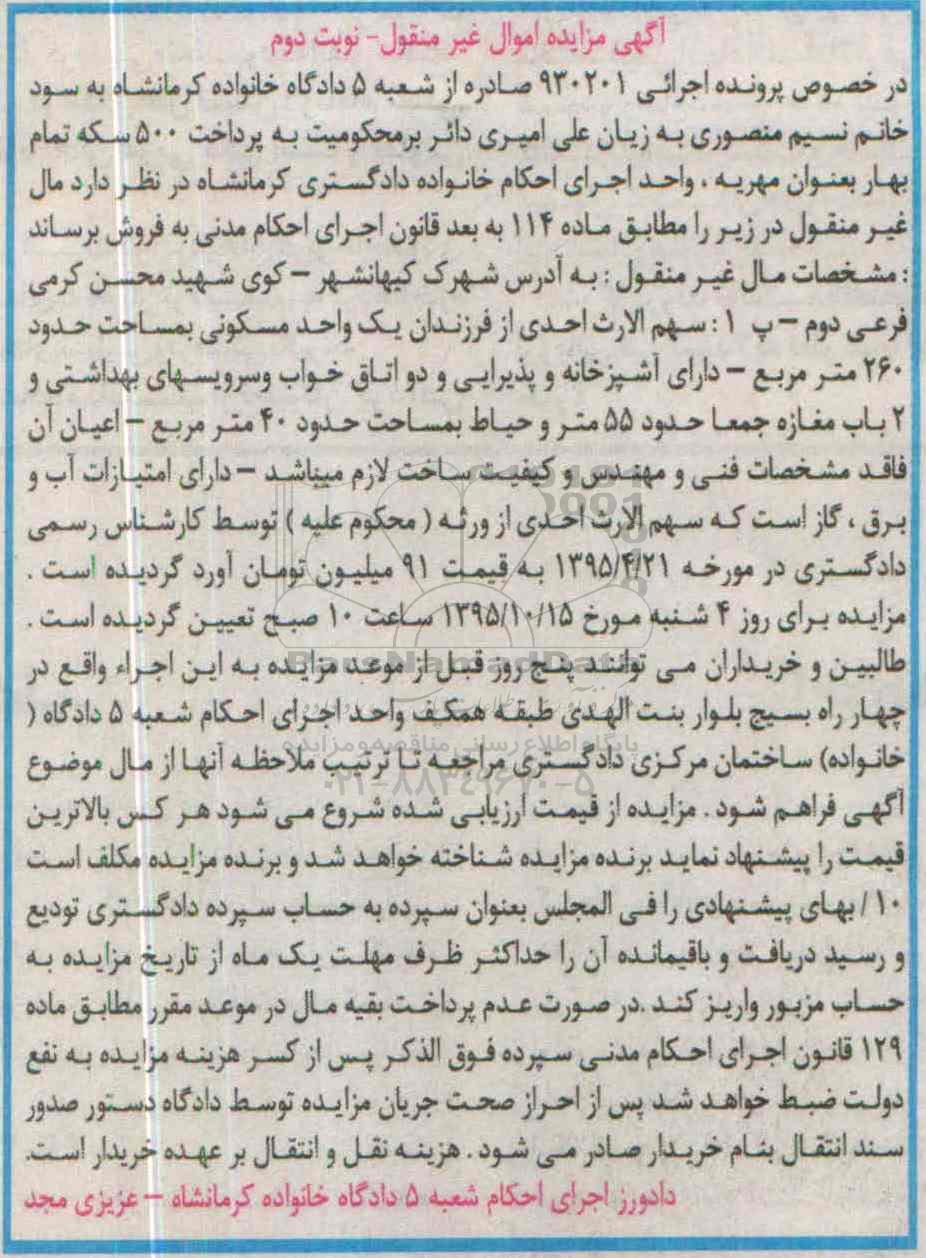 آگهی مزایده اموال غیر منقول- نوبت دوم
در خصوص پرونده اجرائی ۹۳۰۲۰۱ صادره از شعبه ۵ دادگاه خانواده کرمانشاه به سود
خانم نسیم منصوری به زیان علی امیری دائر برمحکومیت به پرداخت ۵۰۰ سکه تمام
بهار بعنوان مهریه ، واحد اجرای احکام خانواده دادگستری کرمانشاه در نظر دارد مال
غیر منقول در زیر را مطابق ماده ۱۱۴ به بعد قانون اجرای احکام مدنی به فروش برساند
: مشخصات مال غیر منقول : به آدرس شهرک کیهانشهر – کوی شهید محسن کرمی
فرعی دوم – پ ۱ : سهم الارث احدی از فرزندان یک واحد مسکونی بمساحت حدود
۲۶۰ متر مربع – دارای آشپزخانه و پذیرایی و دو اتاق خواب وسرویسهای بهداشتی و
۲ باب مغازه جمعا حدود ۵۵ متر و حیاط بمساحت حدود ۴۰ متر مربع – اعیان آن
فاقد مشخصات فنی و مهندس و کیفیت ساخت لازم میباشد – دارای امتیازات آب و
برق ، گاز است که سهم الارث احدی از ورثه ( محکوم علیه ) توسط کارشناس رسمی
دادگستری در مورخه ۱۳۹۵/۴/۲۱ به قیمت ۹۱ میلیون تومان آورد گردیده است .
مزایده برای روز ۴ شنبه مورخ ۱۳۹۵/۱۰/۱۵ ساعت ۱۰ صبح تعیین گردیده است .
طالبین و خریداران می توانند پنج روز قبل از موعد مزایده به این اجراء واقع در
چهار راه بسیج بلوار بنت الهدی طبقه همکف واحد اجرای احکام شعبه ۵ دادگاه (
خانواده) ساختمان مرکزی دادگستری مراجعه تا ترتیب ملاحظه آنها از مال موضوع
پایگاه اطلاع رسانی مناقصه و مزایده
۰۲۱-۸۸۳۴۹۶۷۰-۵
آگهی فراهم شود . مزایده از قیمت ارزیابی شده شروع می شود هر کس بالاترین
قیمت را پیشنهاد نماید برنده مزایده شناخته خواهد شد و برنده مزایده مکلف است
۱۰ / بهای پیشنهادی را فی المجلس بعنوان سپرده به حساب سپرده دادگستری تودیع
و رسید دریافت و باقیمانده آن را حداکثر ظرف مهلت یک ماه از تاریخ مزایده به
حساب مزبور واریز کند .در صورت عدم پرداخت بقیه مال در موعد مقرر مطابق ماده
۱۲۹ قانون اجرای احکام مدنی سپرده فوق الذکر پس از کسر هزینه مزایده به نفع
دولت ضبط خواهد شد پس از احراز صحت جریان مزایده توسط دادگاه دستور صدور
سند انتقال بنام خریدار صادر می شود . هزینه نقل و انتقال بر عهده خریدار است.
دادورز اجرای احکام شعبه ۵ دادگاه خانواده کرمانشاه – عزیزی مجد